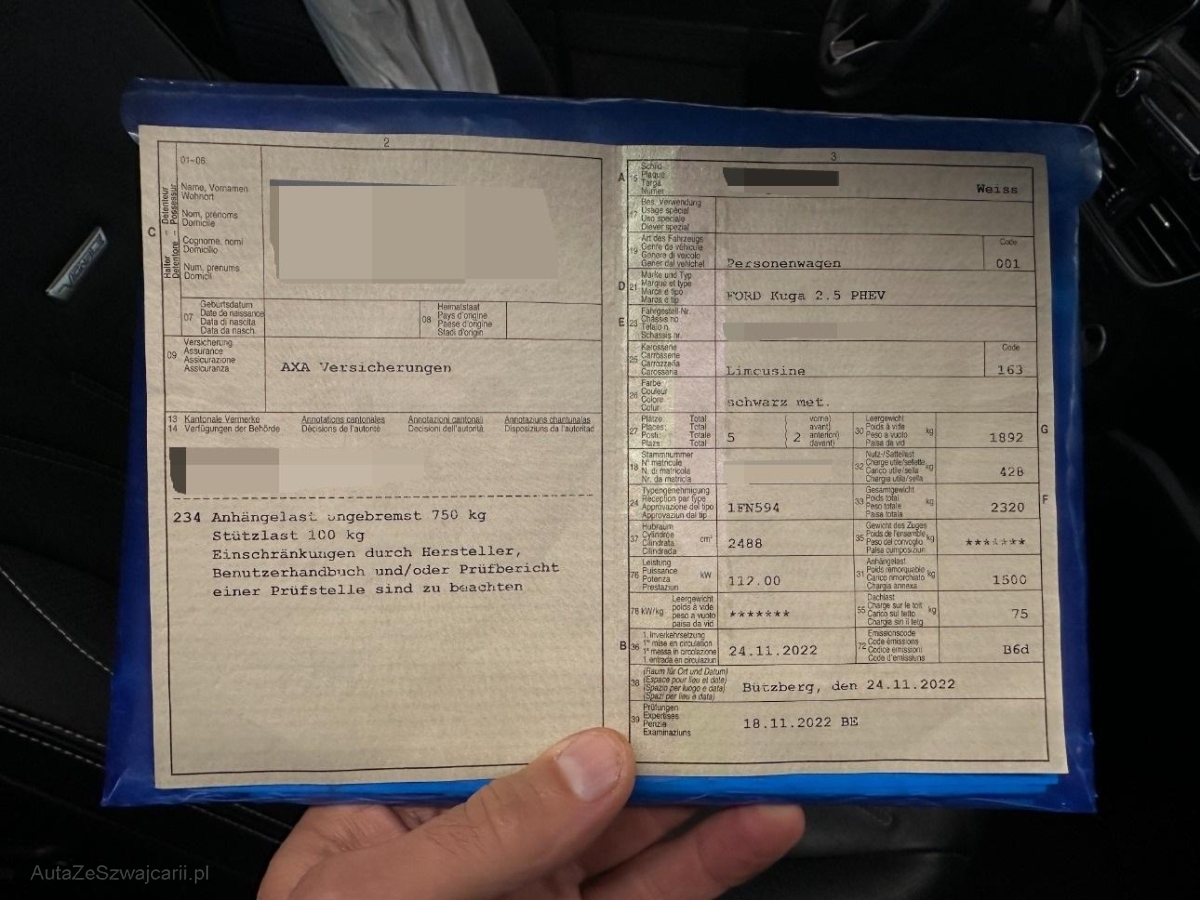 2
01-06
C
Halter – Détenteur
Detentore – Possessur
Name, Vornamen
Wohnort
Nom, prénoms
Domicile
Cognome, nomi
Domicilio
Num, prenums
Domicil
07
Geburtsdatum
Date de naissance
Data di nascita
Data da nasch.
08
Heimatstaat
Pays d'origine
Paese d'origine
Stadi d'origin
09
Versicherung
Assurance
Assicurazione
Assicuranza
AXA Versicherungen
13 Kantonale Vermerke Annotations cantonales Annotazioni cantonali Annotaziuns chantunalas
14 Verfügungen der Behörde Décisions de l'autorité Decisioni dell'autorità Disposiziuns da l'autoritad
234 Anhängelast ungebremst 750 kg
Stützlast 100 kg
Einschränkungen durch Hersteller,
Benutzerhandbuch und/oder Prüfbericht
einer Prüfstelle sind zu beachten
3
A
15
Schild
Plaque
Targa
Numer
Weiss
17
Bes. Verwendung
Usage spécial
Uso speciale
Diever spezial
19
Art des Fahrzeugs
Genre de véhicule
Genere di veicolo
Gener dal vehichel
Personenwagen
Code
001
D
21
Marke und Typ
Marque et type
Marca e tipo
Marca e tip
FORD Kuga 2.5 PHEV
E
23
Fahrgestell-Nr.
Châssis no
Telaio n.
Schassis nr.
25
Karosserie
Carrosserie
Carrozzeria
Carossaria
Limousine
Code
163
26
Farbe
Couleur
Colore
Colur
schwarz met.
27
Plätze: Total
Places: Total
Posti: Totale
Plazs: Total
5
2
vorne)
avant)
anteriori)
davant)
30
Leergewicht
Poids à vide
Peso a vuoto
Paisa da vid
kg
1892
G
18
Stammnummer
N° matricule
N. di matricola
Nr. da matricla
32
Nutz-/Sattellast
Charge utile/sellette
Carico utile/sella
Chargia utila/sella
kg
428
24
Typengenehmigung
Réception par type
Approvazione del tipo
Approvaziun dal tip
1FN594
33
Gesamtgewicht
Poids total
Peso totale
Paisa totala
kg
2320
F
37
Hubraum
Cylindrée
Cilindrata
Cilindrada
cm³
2488
35
Gewicht des Zuges
Poids de l'ensemble
Peso del convoglio
Paisa cumposiziun
kg
*******
76
Leistung
Puissance
Potenza
Prestaziun
kW
112.00
31
Anhängelast
Poids remorquable
Carico rimorchiato
Chargia annexa
kg
1500
78 kW/kg
Leergewicht
poids à vide
peso a vuoto
paisa da vid
*******
55
Dachlast
Charge sur le toit
Carico sul tetto
Chargia sin il tetg
kg
75
B
36
1. Inverkehrsetzung
1re mise en circulation
1a messa in circolazione
1. entrada en circulaziun
24.11.2022
72
Emissionscode
Code émissions
Codice emissioni
Code d'emissiuns
B6d
38
(Raum für Ort und Datum)
(Espace pour lieu et date)
(Spazio per luogo e data)
(Spazi per lieu e data)
Bützberg, den 24.11.2022
39
Prüfungen
Expertises
Perizia
Examinaziuns
18.11.2022 BE
AutaZeSzwajcarii.pl